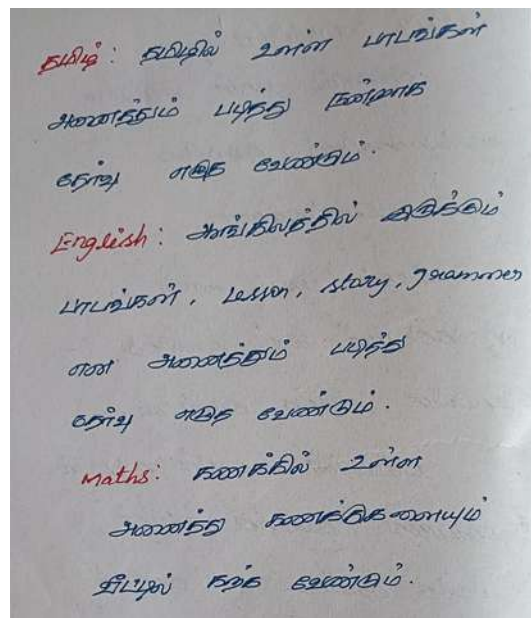 தமிழ் : தமிழில் உள்ள பாடங்கள்
அனைத்தும் படித்து நன்றாக
தேர்வு எழுத வேண்டும்.
English : ஆங்கிலத்தில் இருக்கும்
பாடங்கள், Lesson, story, grammer
என அனைத்தும் படித்து
தேர்வு எழுத வேண்டும்.
Maths: கணக்கில் உள்ள
அனைத்து கணக்குகளையும்
வீட்டில் கற்க வேண்டும்.